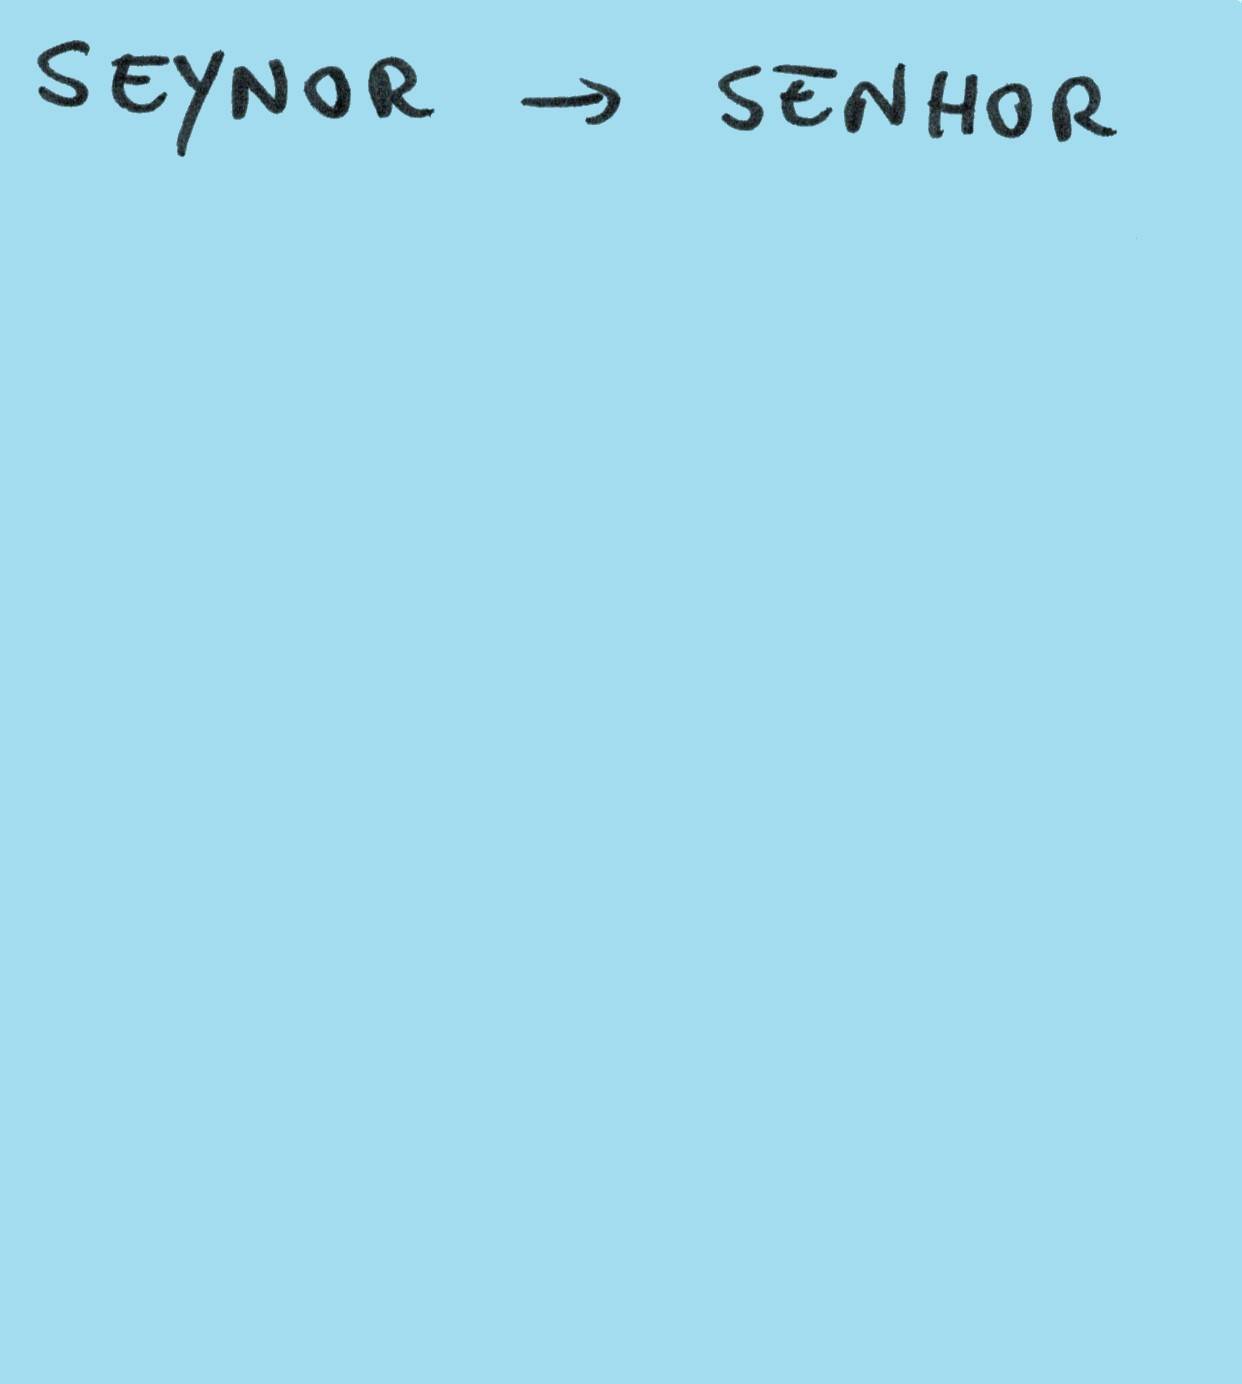 SEYNOR → SĒNHOR